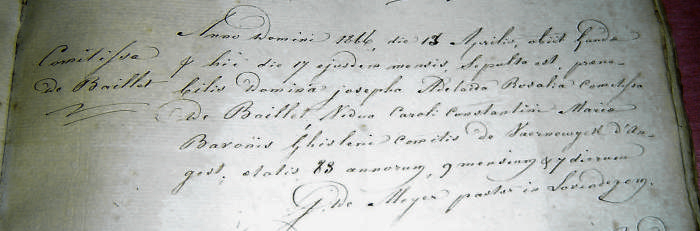 Comitissa
de Baillet
Anno Domini 1866, die 13 Aprilis, obiit Gandæ
& hic die 17 ejusdem mensis sepulta est, præno-
bilis Domina josepha Adelaïda Rosalia Comitissa
de Baillet, Vidua Caroli Constantini Mariæ
Baronis Ghisleni Comitis de Vaernewyck d'An-
gest, etatis 83 annorum, 9 mensium & 7 dierum
G. De Meyer pastor in